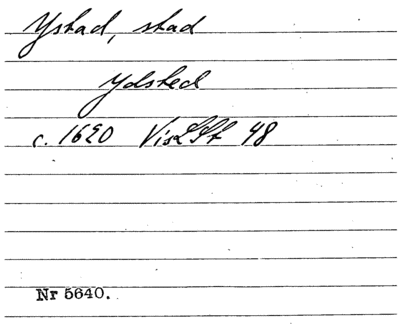 Ystad, stad
Ydsted
c. 1620 VisLSt 48
Nr 5640.